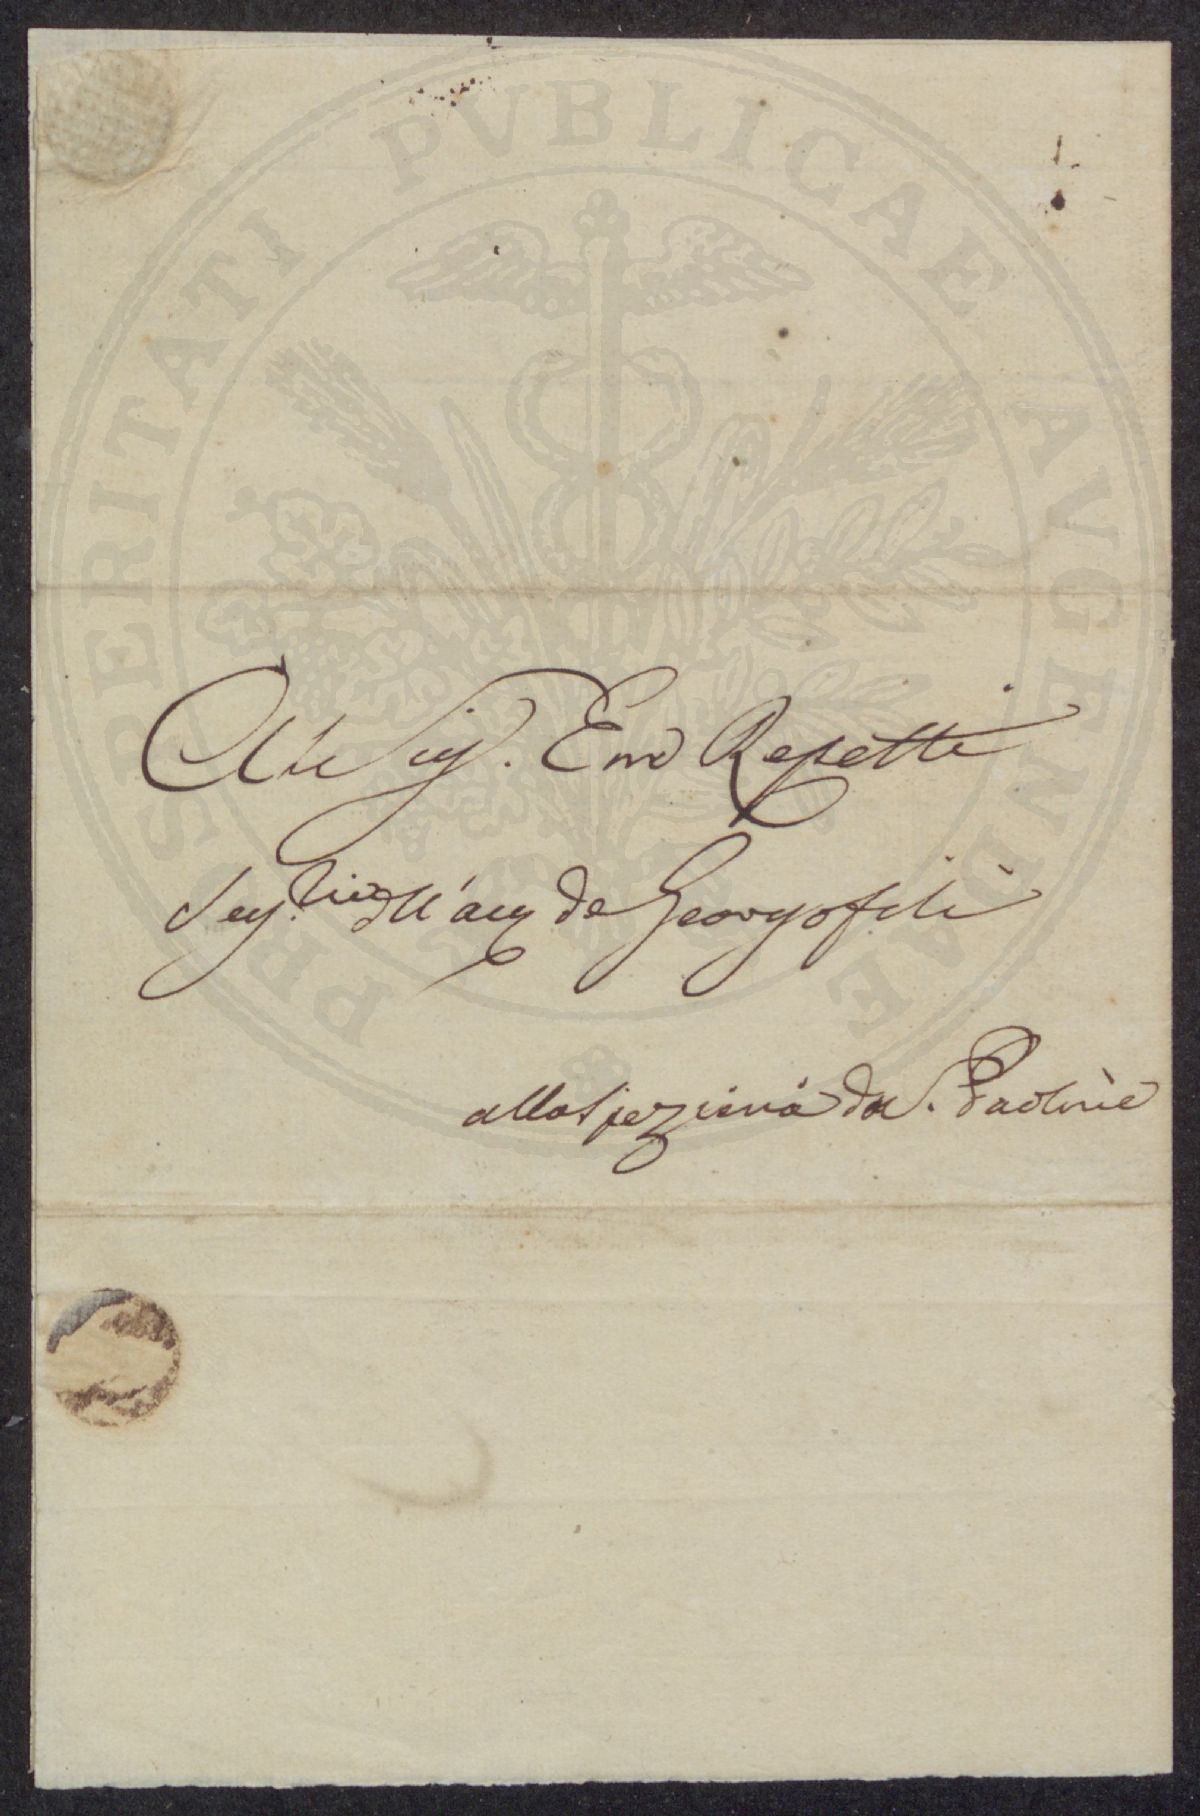 PROSPERITATI PVBLICAE AVGENDAE
Al Sig. Em Repetti
Seg.rio dell'acc de Georgofili
alla spezieria da S. Paolino